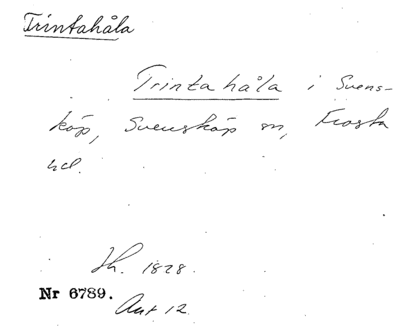 Trintahåla
Trintahåla i Svens-
köp, Svensköp sn, Frosta
hd.
Jh. 1828.
Nr 6789.
Akt 12.